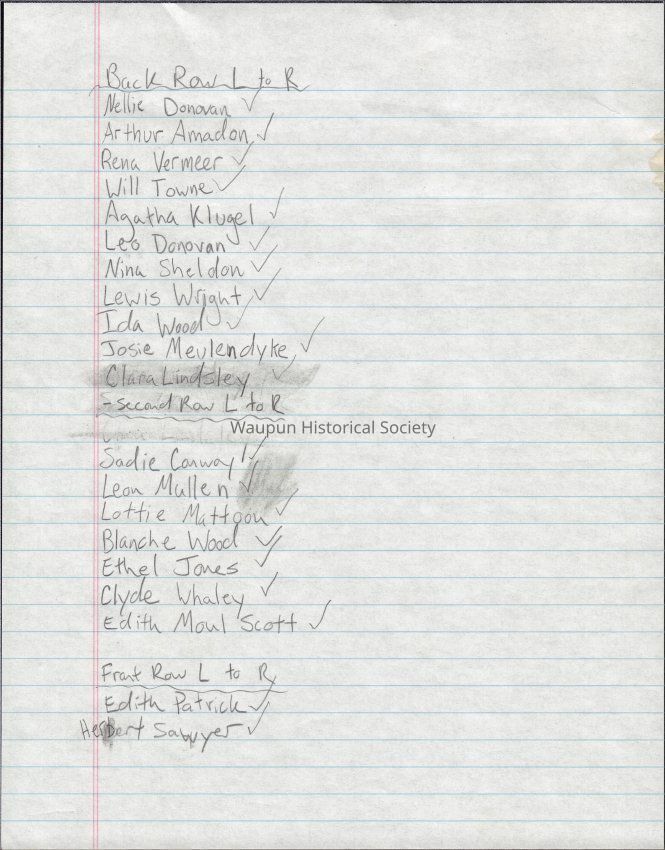 Back Row L to R
Nellie Donovan ✓
Arthur Amadon ✓
Rena Vermeer ✓
Will Towne ✓
Agatha Klugel ✓
Leo Donovan ✓
Nina Sheldon ✓
Lewis Wright ✓
Ida Wood ✓
Josie Meulendyke ✓
Clara Lindsley ✓
-Second Row L to R
Waupun Historical Society
Sadie Conway ✓
Leon Mullen ✓
Lottie Mattoon ✓
Blanche Wood ✓
Ethel Jones ✓
Clyde Whaley ✓
Edith Moul Scott ✓
Front Row L to R
Edith Patrick ✓
Herbert Sawyer ✓